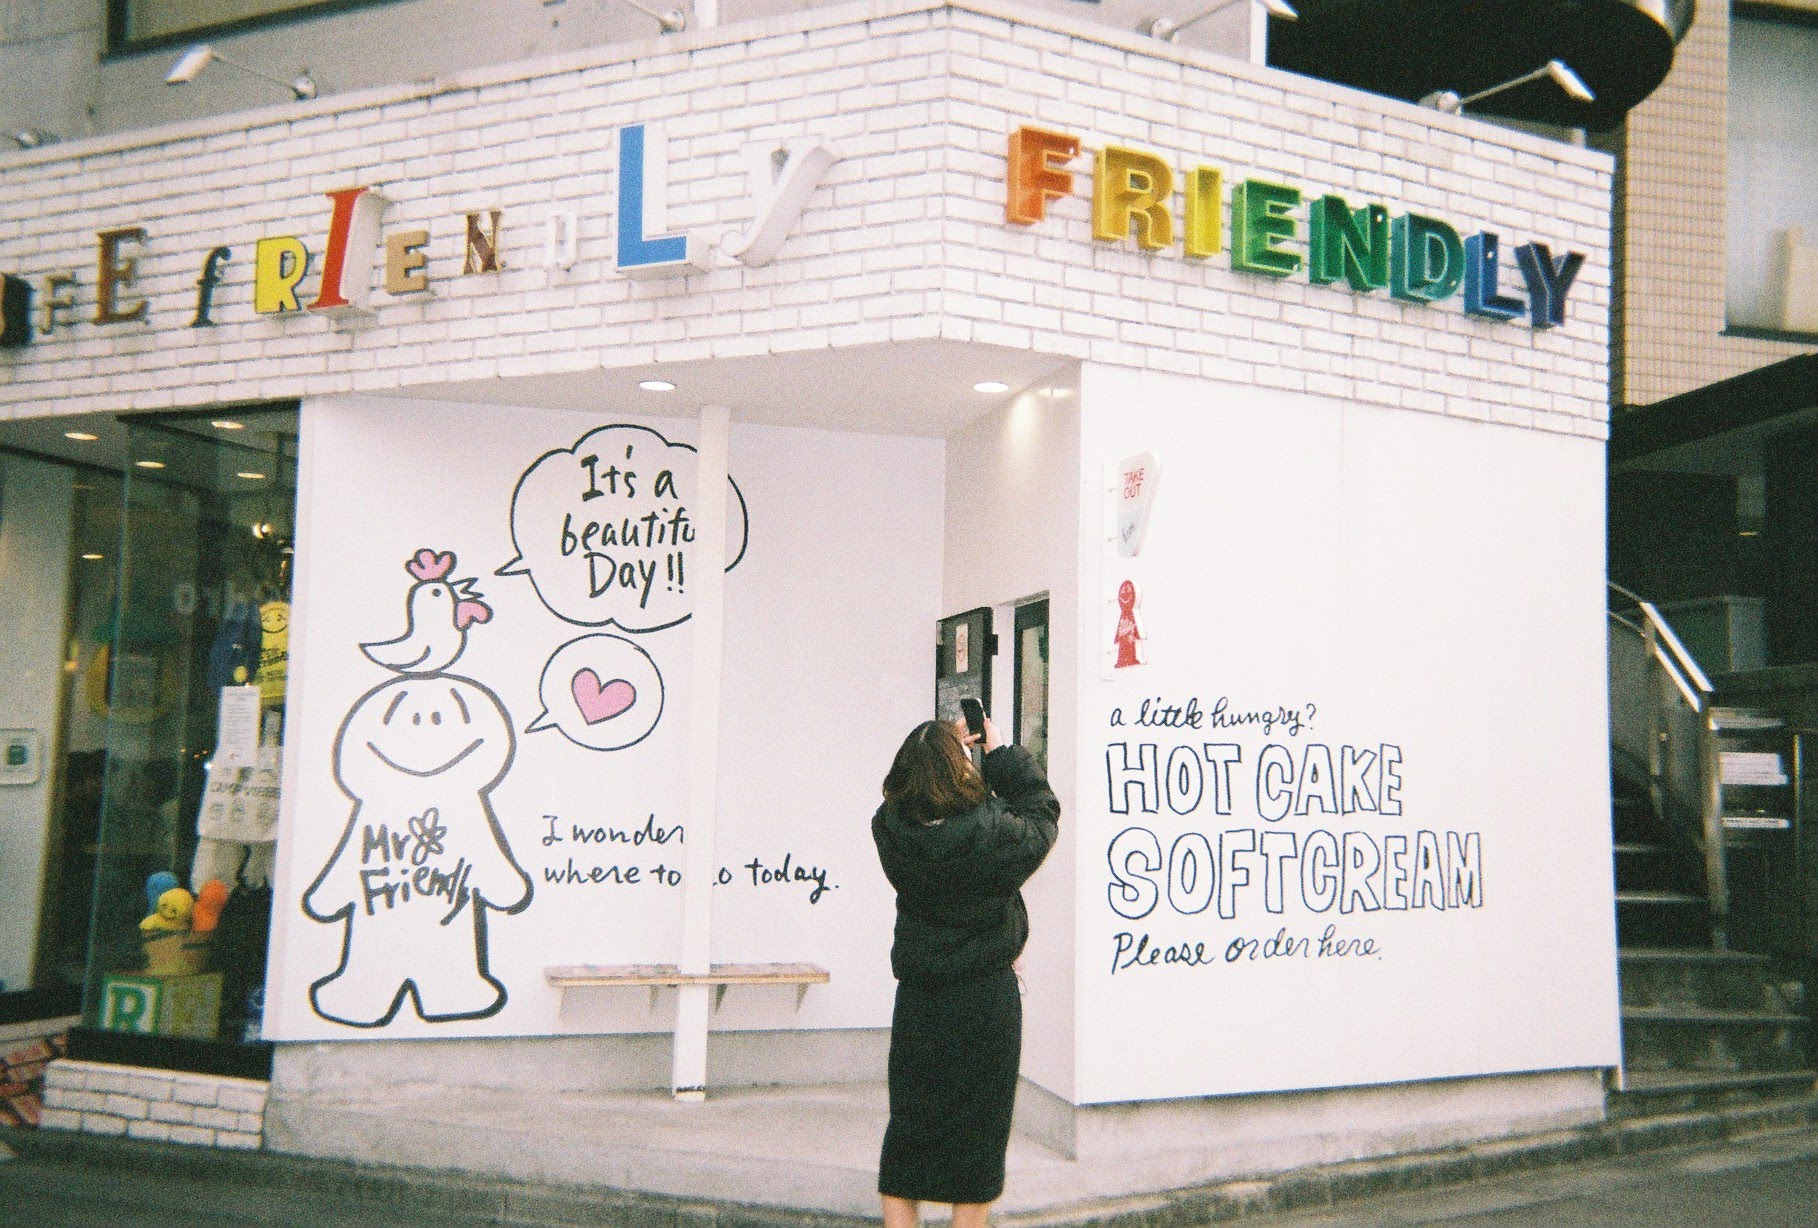 FE fRIENDLy
FRIENDLY
It's a
beautifu
Day!!
TAKE
OUT
Mr
Friendly
I wonder
where to o today.
a little hungry?
HOT CAKE
SOFTCREAM
Please order here.
R